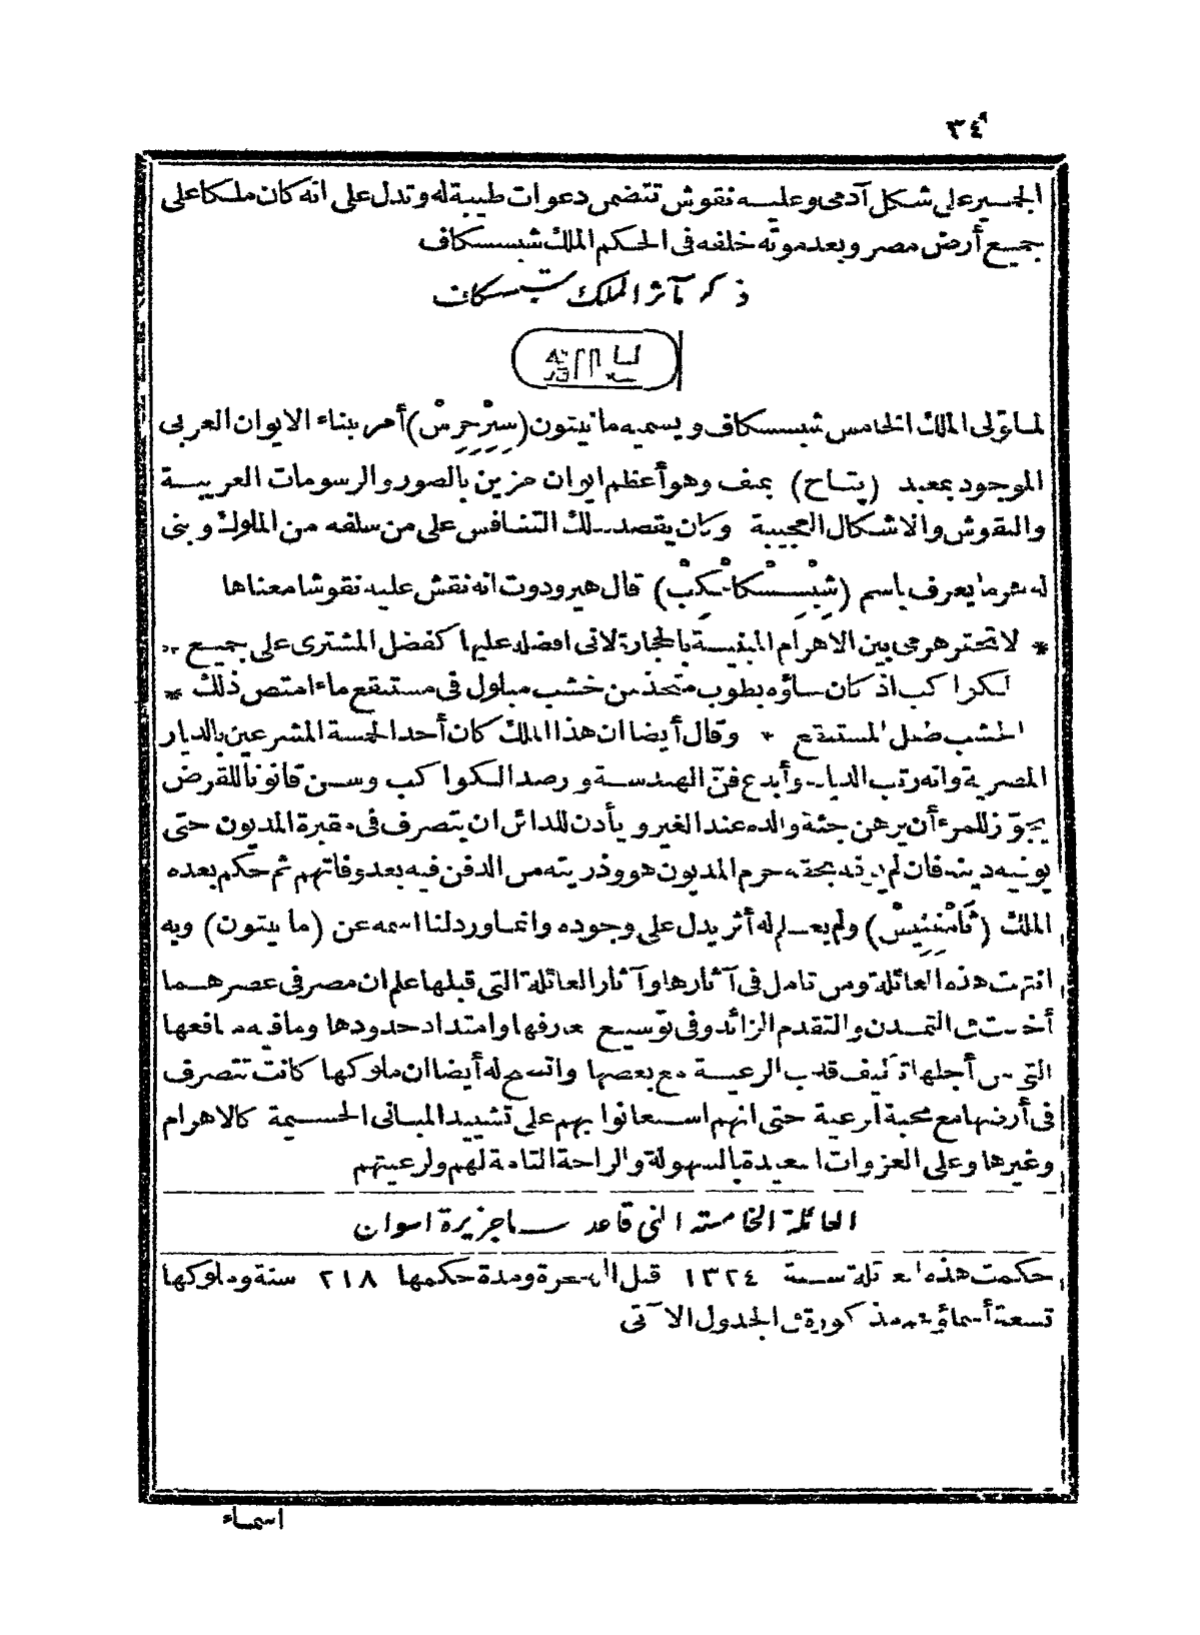 ٣٤
الجسيم على شكل آدمى وعليه نقوش تتضمن دعوات طيبة له وتدل على انه كان ملكا على
جميع أرض مصر وبعد موته خلفه فى الحكم الملك شبسسكاف
ذكر مآثر الملك شبسسكاف
لما تولى الملك الخامس شبسسكاف ويسميه مانيتون (سِيْرْخِرِسْ) أمر ببناء الايوان الغربى
الموجود بمعبد (پتاح) بمنف وهو أعظم ايوان مزين بالصور والرسومات الغريبة
والنقوش والاشكال العجيبة وكان يقصد بذلك التنافس على من سلفه من الملوك وبنى
له هرما يعرف باسم قال هيرودوت انه نقش عليه نقوشا معناها
* لا تحتقر هرمى بين الاهرام المبنية بالحجارة لانى افضل عليها كفضل المشترى على جميع
الكواكب اذ كان بناؤه بطوب متخذ من خشب مبلول فى مستنقع ماء امتص ذلك *
الخشب طفل المستنقع * وقال أيضا ان هذا الملك كان أحد الخمسة المشرعين بالديار
المصرية وانه رتب الديانة وأبدع فنّ الهندسة ورصد الكواكب وسن قانونا للقرض
يجوّز للمرء أن يرهن جثة والده عند الغير ويأذن للدائن ان يتصرف فى مقبرة المديون حتى
يوفيه دينه فان لم يوفه بحقه حرم المديون هو وذريته من الدفن فيه بعد وفاتهم ثم حكم بعده
الملك ولم يعلم له أثر يدل على وجوده وانما وردلنا اسمه عن (مانيتون) وبه
انقرضت هذه العائلة ومن تامل فى آثارها وآثار العائلة التى قبلها علم ان مصر فى عصرهما
أخذت فى التمدن والتقدم الزائد وفى توسيع معارفها وامتداد حدودها وما فيه منافعها
التى من أجلها تأليف قلوب الرعية مع بعضها واتضح له أيضا ان ملوكها كانت تتصرف
فى أرضها مع محبة الرعية حتى انهم استعانوا بهم على تشييد المبانى الجسيمة كالاهرام
وغيرها وعلى الغزوات البعيدة بالسهولة والراحة التامة لهم ولرعيتهم
العائلة الخامسة التى قاعدتها جزيرة اسوان
حكمت هذه العائلة سنة ١٣٢٤ قبل الهجرة ومدة حكمها ٢١٨ سنة وملوكها
تسعة أسماؤهم مذكورة فى الجدول الآتى
اسماء